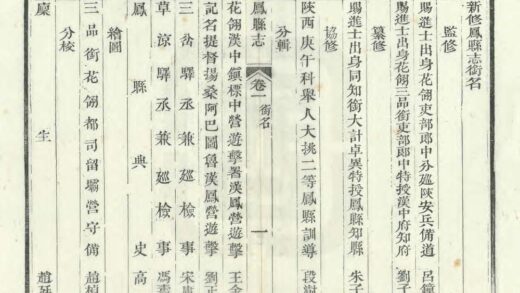 新修鳳縣志銜名
監修
賜進士出身花翎吏部郎中分廵陝安兵備道 呂鐘
賜進士出身花翎三品銜吏部郎中特授漢中府知府 劉子
纂修
賜進士出身同知銜大計卓異特授鳳縣知縣 朱子
協修
陝西庚午科舉人大挑二等鳳縣訓導 段
分輯
鳳縣志 卷一 銜名 一
花翎漢中鎭標中營遊擊署漢鳳營遊擊 王金
記名提督揚桑阿巴圖魯漢鳳營遊擊 劉正
三岔驛丞兼廵檢事 宋
草涼驛丞兼廵檢事 馮
鳳縣典史 高
繪圖
三品銜花翎都司留壩營守備 趙楨
分校
廩生 趙